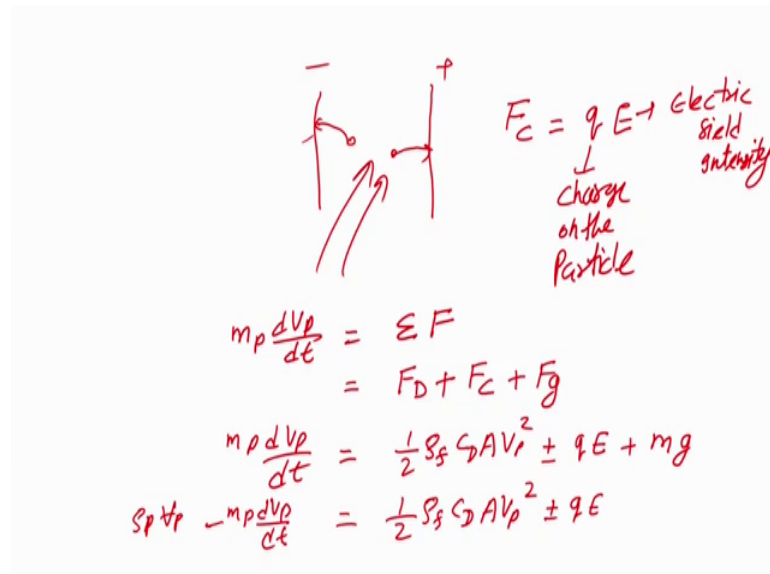 − +
F_c = q E → Electric
field
intensity
↓
charge
on the
Particle
m_p dV_p/dt = ΣF
= F_D + F_c + F_g
m_p dV_p/dt = 1/2 ρ_f C_D A V_r² ± qE + mg
ρ_p V_p − m_p dV_p/dt = 1/2 ρ_f C_D A V_p² ± qE